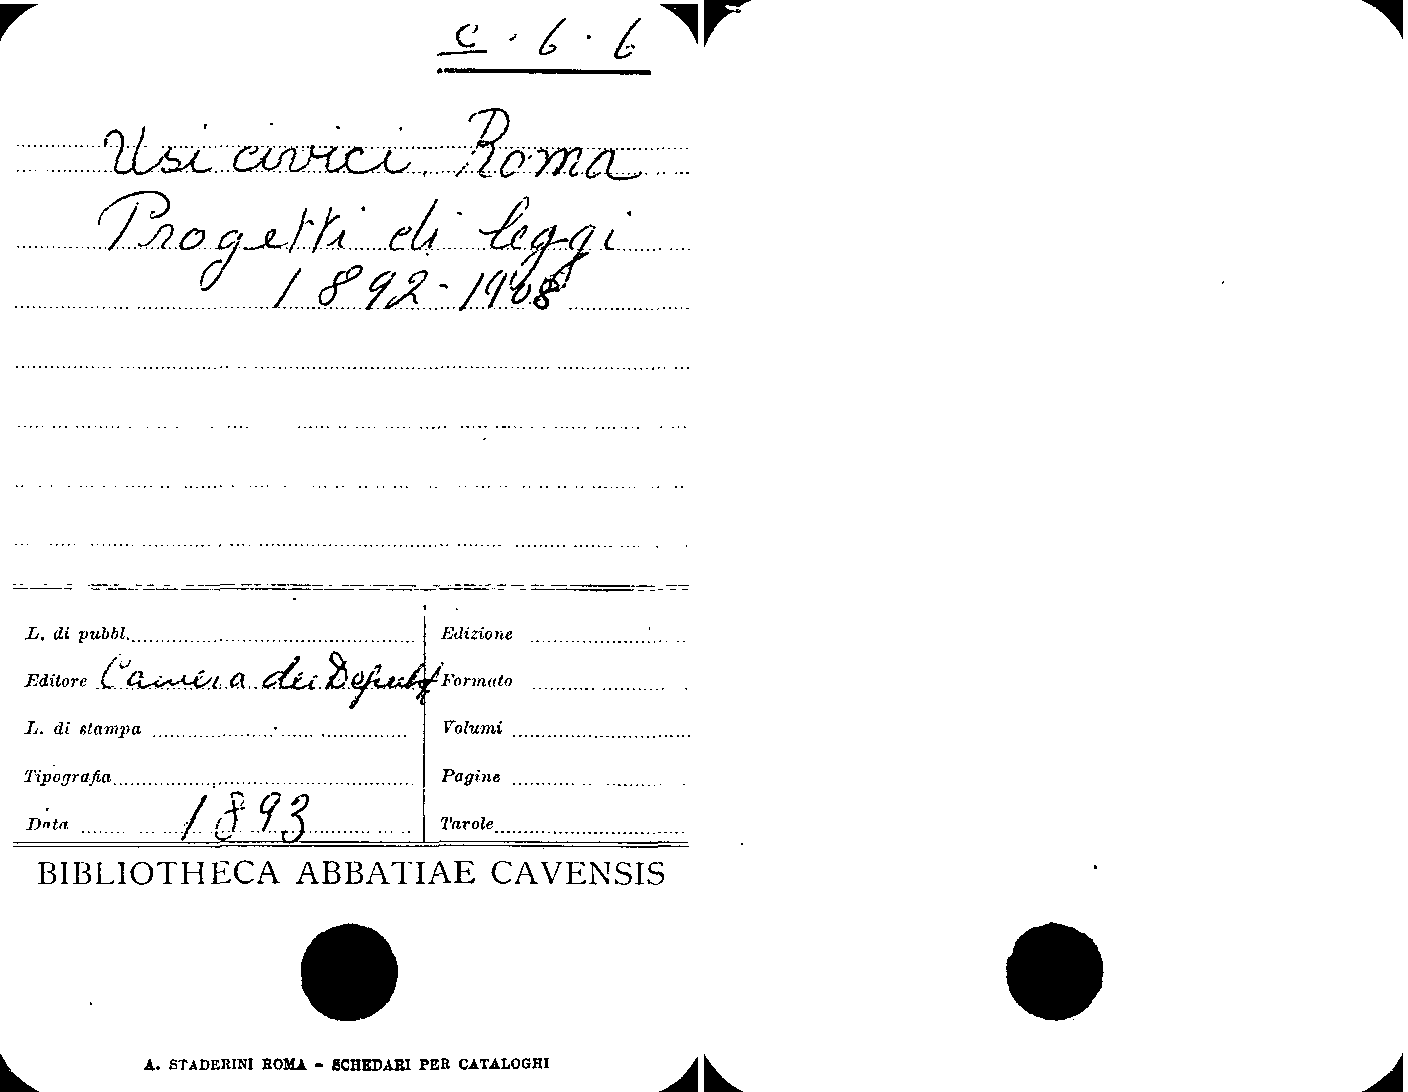 C. 6. 6
Usi civici. Roma
Progetti di leggi
1892-1908
L. di pubbl.
Editore Camera dei Deput.
L. di stampa
Tipografia
Data 1893
Edizione
Formato
Volumi
Pagine
Tavole
BIBLIOTHECA ABBATIAE CAVENSIS
A. STADERINI ROMA - SCHEDARI PER CATALOGHI